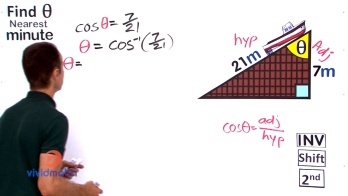 Find θ
Nearest
minute
cosθ = 7/21
θ = cos⁻¹(7/21)
θ =
hyp
21m
θ
Adj
7m
cosθ = adj/hyp
INV
Shift
2nd